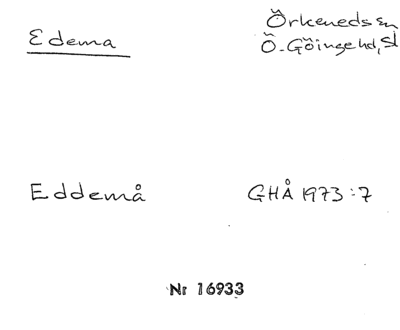 Edema
Örkeneds sn
Ö. Göinge hd, Sk
Eddemå
GHÅ 1973:7
Nr 16933